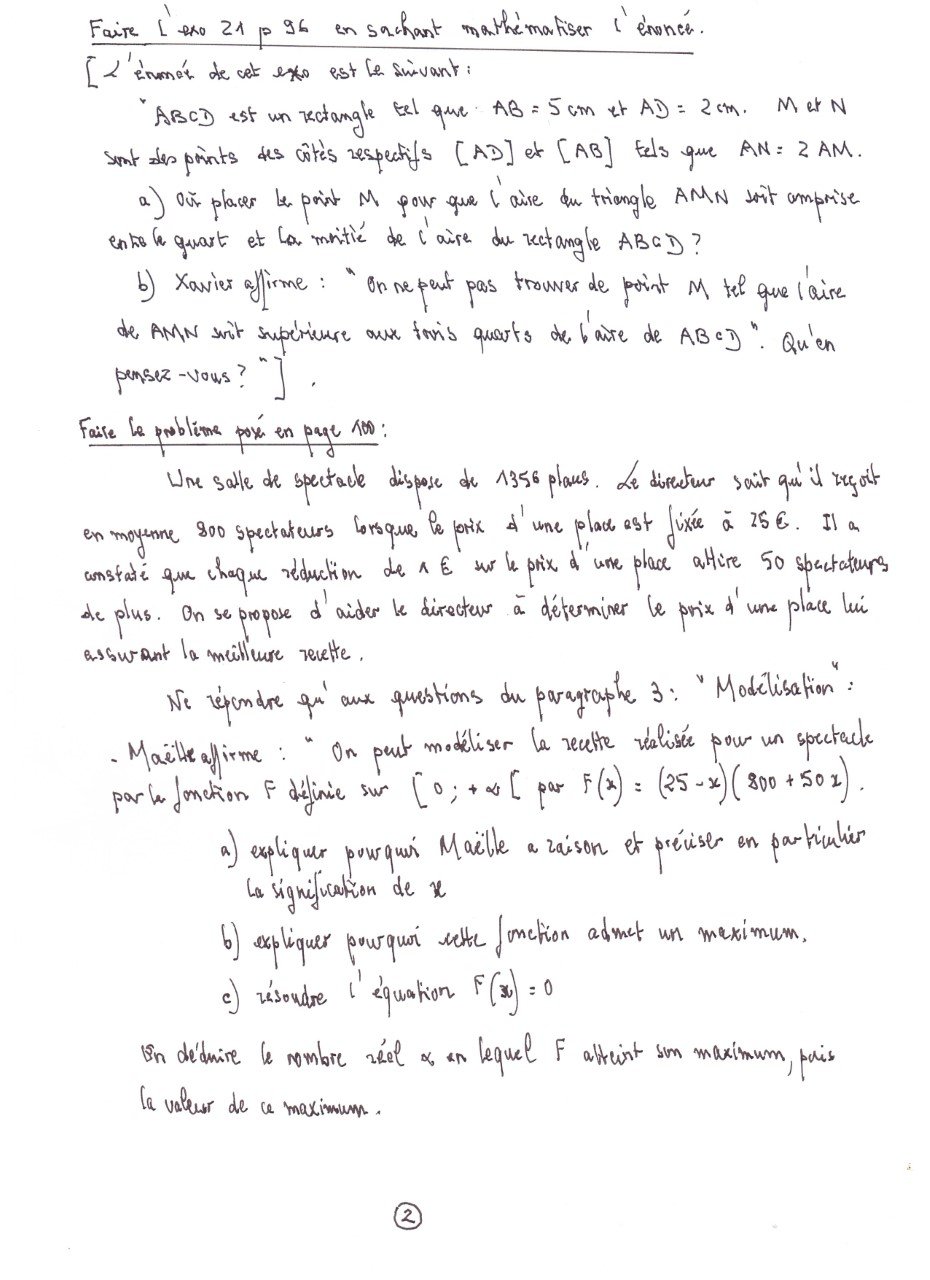 Faire l'exo 21 p 96 en sachant mathématiser l'énoncé.
[L'énoncé de cet exo est le suivant :
"ABCD est un rectangle tel que AB = 5 cm et AD = 2 cm. M et N
sont des points des côtés respectifs [AD] et [AB] tels que AN = 2 AM.
a) Où placer le point M pour que l'aire du triangle AMN soit comprise
entre le quart et la moitié de l'aire du rectangle ABCD ?
b) Xavier affirme : "On ne peut pas trouver de point M tel que l'aire
de AMN soit supérieure aux trois quarts de l'aire de ABCD". Qu'en
pensez-vous ?"].
Faire le problème posé en page 100 :
Une salle de spectacle dispose de 1356 places. Le directeur sait qu'il reçoit
en moyenne 800 spectateurs lorsque le prix d'une place est fixée à 25 €. Il a
constaté que chaque réduction de 1 € sur le prix d'une place attire 50 spectateurs
de plus. On se propose d'aider le directeur à déterminer le prix d'une place lui
assurant la meilleure recette.
Ne répondre qu'aux questions du paragraphe 3 : "Modélisation" :
- Maëlle affirme : "On peut modéliser la recette réalisée pour un spectacle
par la fonction F définie sur [0 ; +∞[ par F(x) = (25-x)(800 + 50x).
a) expliquer pourquoi Maëlle a raison et préciser en particulier
la signification de x
b) expliquer pourquoi cette fonction admet un maximum.
c) résoudre l'équation F(x) = 0
En déduire le nombre réel α en lequel F atteint son maximum, puis
la valeur de ce maximum.
2